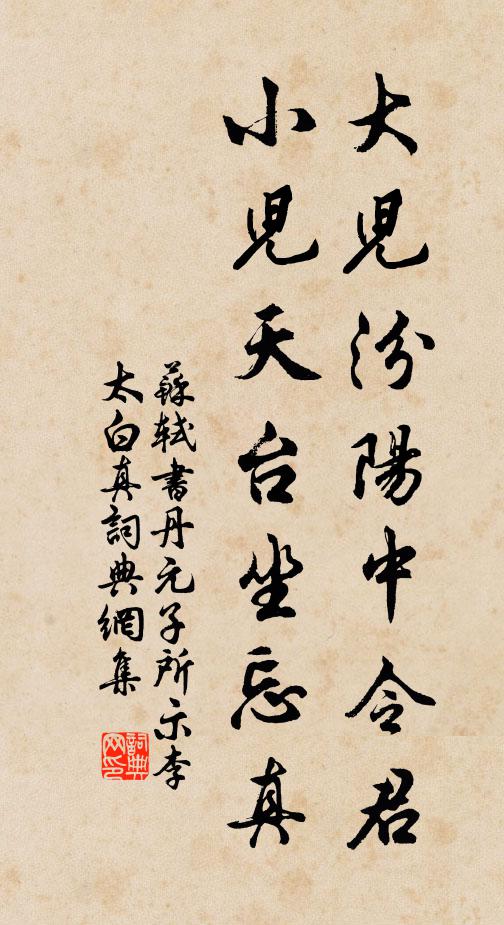 大兒汾陽中令君
小兒天台坐忘真
蘇軾書丹元子所示李
太白真詞典網集
詞典網印